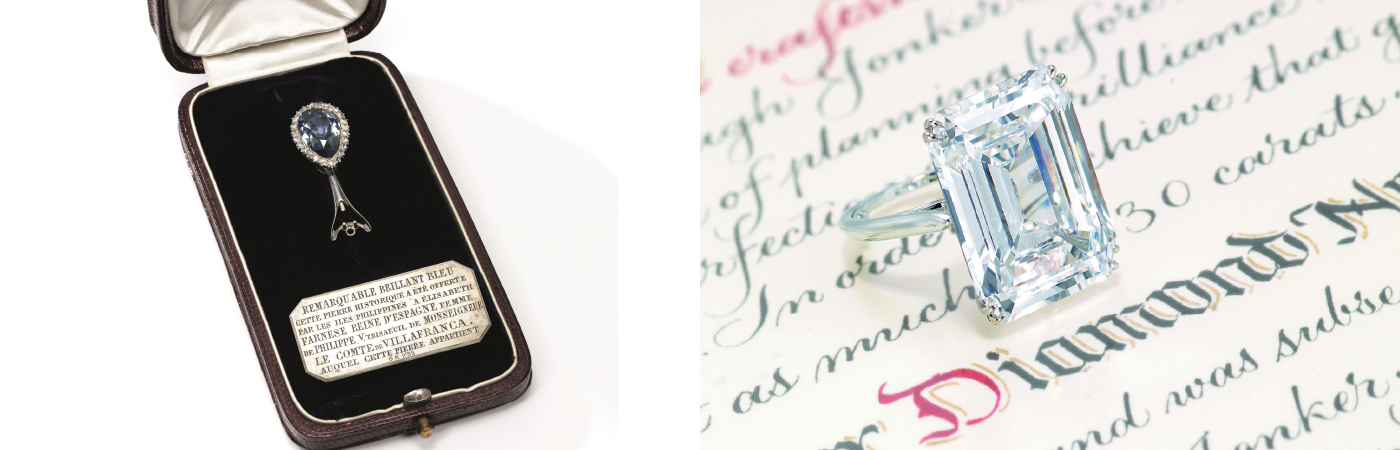 REMARQUABLE BRILLANT BLEU
CETTE PIERRE HISTORIQUE A ÉTÉ OFFERTE
PAR LES ILES PHILIPPINES A ÉLISABETH
FARNESE REINE D'ESPAGNE FEMME
DE PHILIPPE V. TRISAEUIL DE MONSEIGNEUR
LE COMTE DE VILLAFRANCA.
AUQUEL CETTE PIERRE APPARTIENT
Jonker
of planning before
brilliance
achieve that
In order
30 carats.
as much
Diamond
and was
Jonker